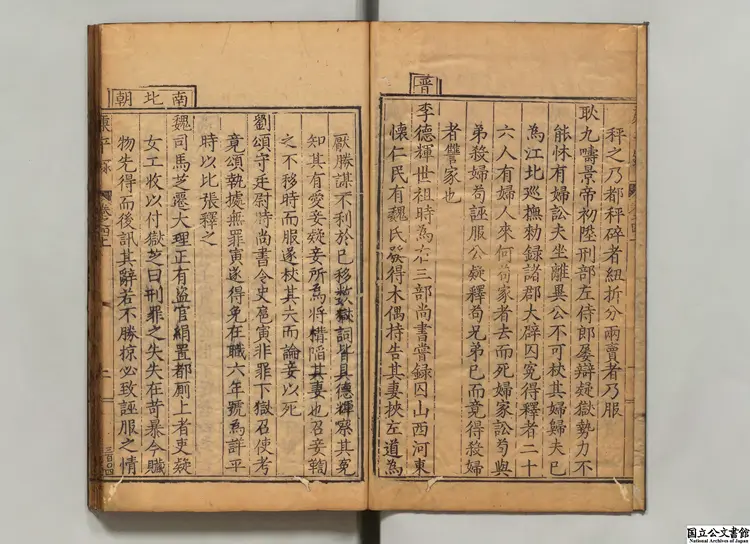 秤之乃都秤碎者紐折分兩賣者乃服
耿九疇景帝初陞刑部左侍郎屢辯疑獄勢力不
能怵有婦訟夫坐離異公不可杖其婦歸夫已
為江北巡撫勅錄諸郡大辟囚冤得釋者二十
六人有婦人來何苟家者去而死婦家訟苟與
弟殺婦苟誣服公疑釋苟兄弟已而竟得殺婦
者讐家也
晋
李德輝世祖時為右三部尚書嘗録囚山西河東
懷仁民有魏氏發得木偶持告其妻挾左道為
厭勝謀不利於已移數獄詞皆具德輝察其冤
知其有愛妾疑妾所為將構陷其妻也召妾鞫
之不移時而服遂杖其夫而論妾以死
劉頌守廷尉時尚書令史扈寅非罪下獄召使考
竟頌執據無罪寅遂得免在職六年號為詳平
時以比張釋之
南北朝
魏司馬芝遷大理正有盗官絹置都厠上者吏疑
女工收以付獄芝曰刑罪之失失在苛暴今贓
物先得而後訊其辭若不勝掠必致誣服之情
国立公文書館
National Archives of Japan